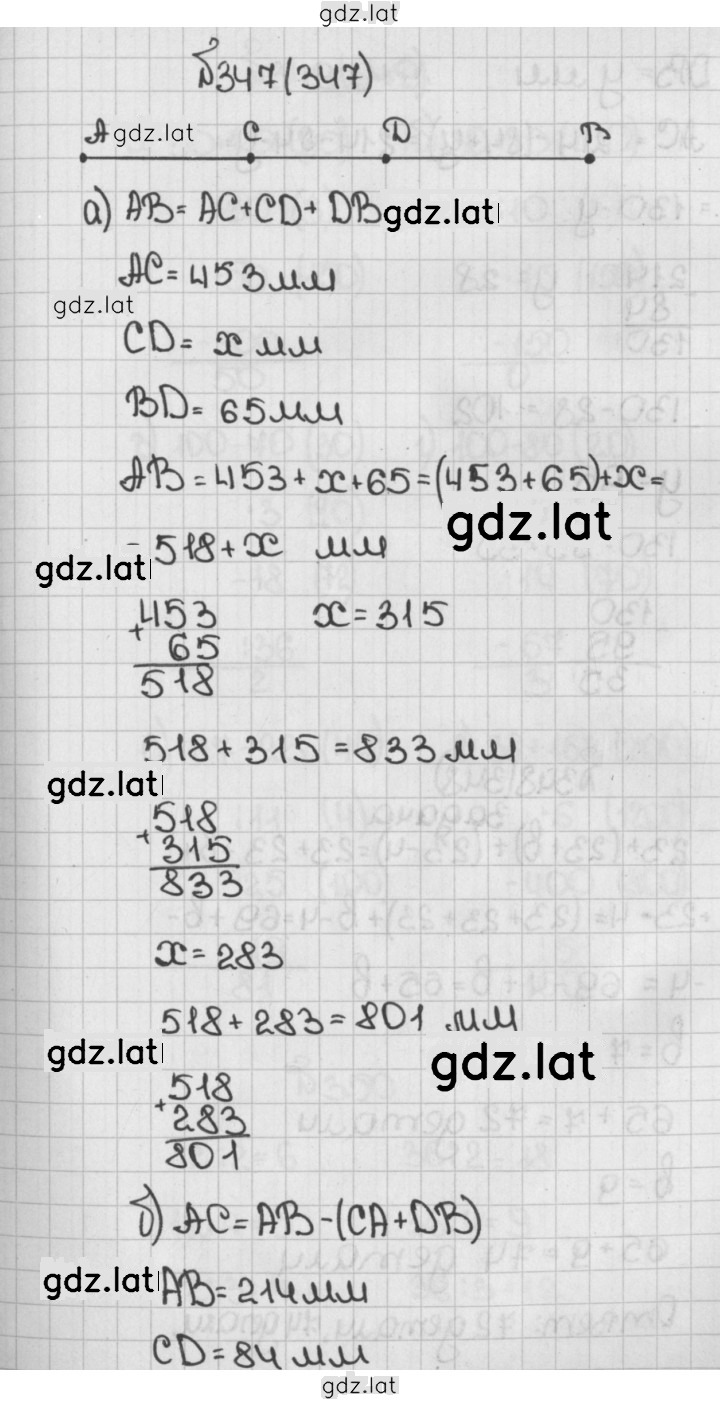 gdz.lat
№347(347)
A gdz.lat C D B
а) AB= AC+CD+ DB gdz.lat
AC= 453мм
gdz.lat
CD= x мм
BD= 65мм
AB= 453+ x+65=(453+65)+x=
gdz.lat
gdz.lat - 518+x мм
+453 x=315
65
518
518+315=833мм
gdz.lat
+518
315
833
x=283
518+283=801 мм
gdz.lat gdz.lat
+518
+283
801
б) AC=AB-(CA+DB)
gdz.lat AB=214мм
CD=84мм
gdz.lat